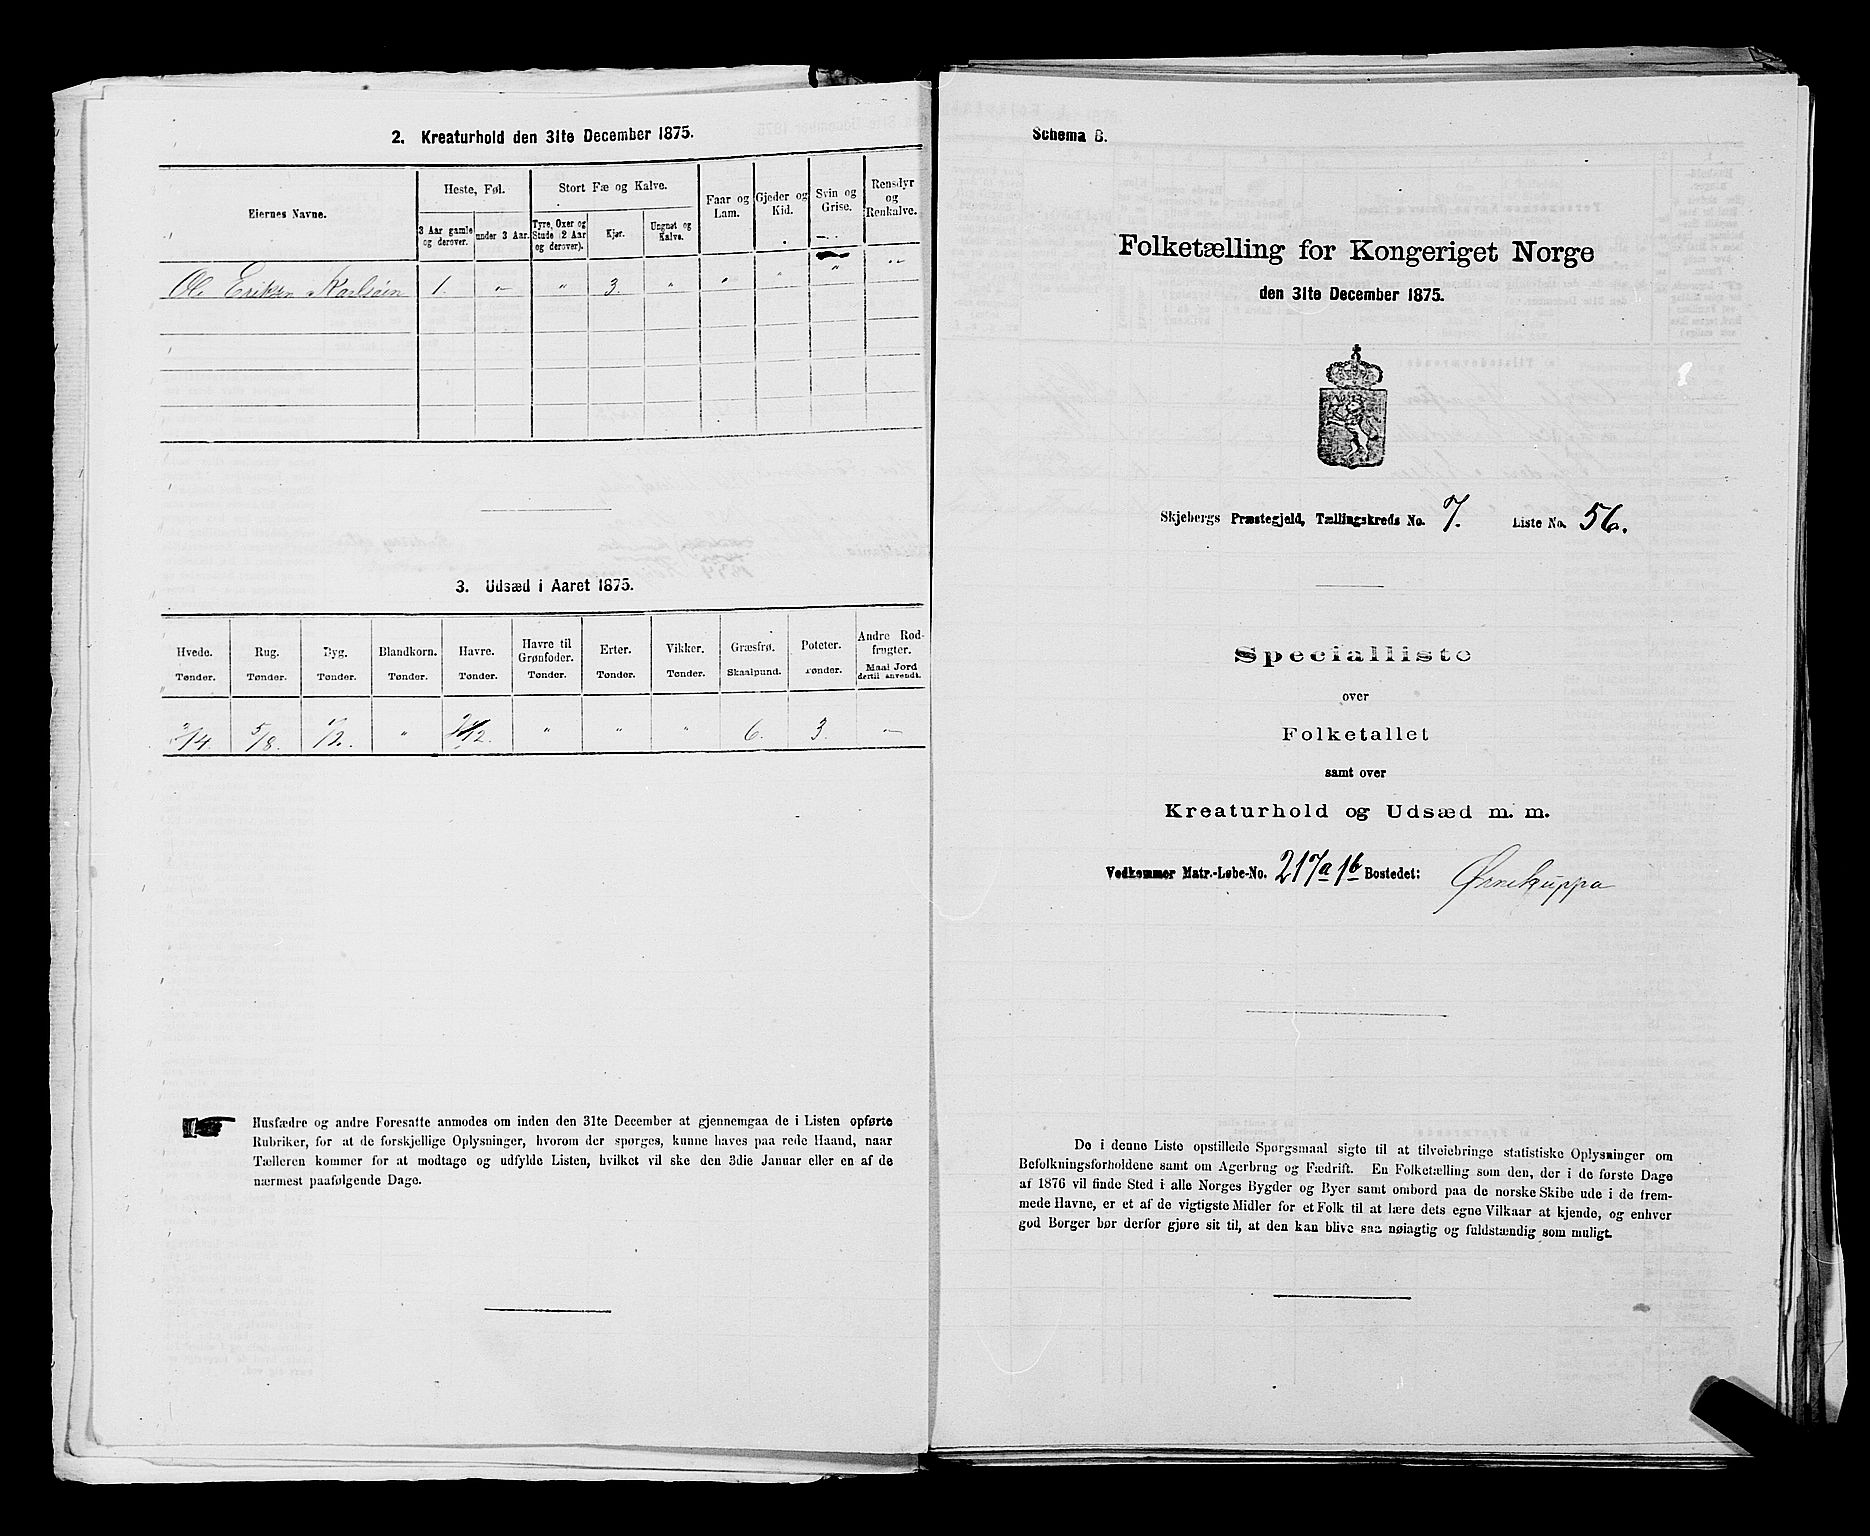 2. Kreaturhold den 31te December 1875.
Eiernes Navne.
Heste, Føl.
3 Aar gamle og derover.
under 3 Aar.
Stort Fæ og Kalve.
Tyre, Oxer og Stude (2 Aar og derover).
Kjør.
Ungnøt og Kalve.
Faar og Lam.
Gjeder og Kid.
Svin og Grise.
Rensdyr og Renkalve.
Ole Eriksen 1. " " 3. " " " " "
3. Udsæd i Aaret 1875.
Hvede. Rug. Byg. Blandkorn. Havre. Havre til Grønfoder. Erter. Vikker. Græsfrø. Poteter. Andre Rodfrugter.
Tønder. Tønder. Tønder. Tønder. Tønder. Tønder. Tønder. Tønder. Skaalpund. Tønder. Maal Jord dertil anvendt.
5/8. 1/2. " " " " 6. 3. "
Husfædre og andre Foresatte anmodes om inden den 31te December at gjennemgaa de i Listen opførte
Rubriker, for at de forskjellige Oplysninger, hvorom der spørges, kunne haves paa rede Haand, naar
Tælleren kommer for at modtage og udfylde Listen, hvilket vil ske den 3die Januar eller en af de
nærmest paafølgende Dage.
Schema B.
Folketælling for Kongeriget Norge
den 31te December 1875.
Skjebergs Præstegjeld, Tællingskreds No. 7. Liste No. 56.
Specialliste
over
Folketallet
samt over
Kreaturhold og Udsæd m. m.
Vedkommer Matr.-Løbe-No. 217a 1b Bostedet: Ørnekuppa
De i denne Liste opstillede Spørgsmaal sigte til at tilveiebringe statistiske Oplysninger om
Befolkningsforholdene samt om Agerbrug og Fædrift. En Folketælling som den, der i de første Dage
af 1876 vil finde Sted i alle Norges Bygder og Byer samt ombord paa de norske Skibe ude i de frem-
mede Havne, er et af de vigtigste Midler for et Folk til at lære dets egne Vilkaar at kjende, og enhver
god Borger bør derfor gjøre sit til, at den kan blive saa nøiagtig og fuldstændig som muligt.